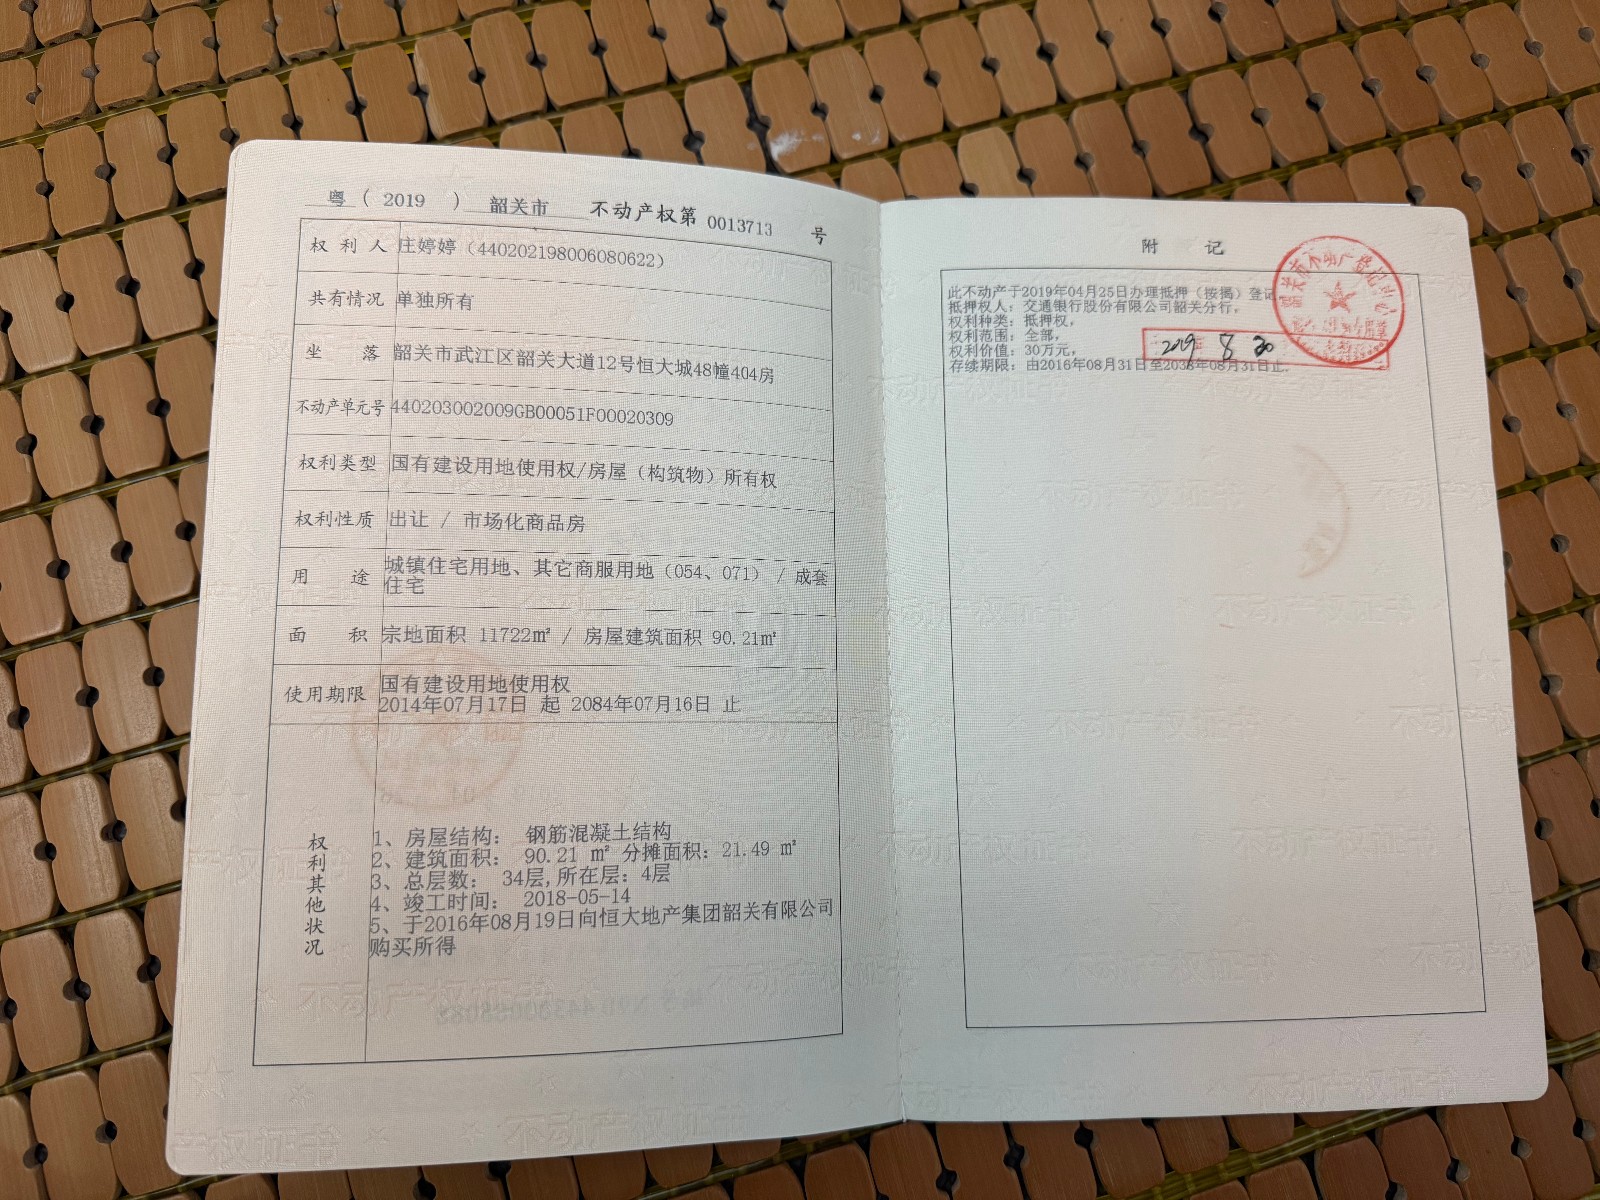 粤 ( 2019 ) 韶关市 不动产权第 0013713 号
权利人 庄婷婷（440202198006080622）
共有情况 单独所有
坐落 韶关市武江区韶关大道12号恒大城48幢404房
不动产单元号 440203002009GB00051F00020309
权利类型 国有建设用地使用权/房屋（构筑物）所有权
权利性质 出让 / 市场化商品房
用途 城镇住宅用地、其它商服用地（054、071） / 成套
住宅
面积 宗地面积 11722㎡ / 房屋建筑面积 90.21㎡
使用期限 国有建设用地使用权
2014年07月17日 起 2084年07月16日 止
权利其他状况
1、房屋结构： 钢筋混凝土结构
2、建筑面积： 90.21 ㎡ 分摊面积：21.49 ㎡
3、总层数： 34层,所在层：4层
4、竣工时间： 2018-05-14
5、于2016年08月19日向恒大地产集团韶关有限公司
购买所得
附 记
此不动产于2019年04月25日办理抵押（按揭）登记
抵押权人：交通银行股份有限公司韶关分行，
权利种类：抵押权，
权利范围：全部，
权利价值：30万元，
存续期限：由2016年08月31日至2036年08月31日止.
韶关市不动产登记中心
2019 8 30
不动产权证书